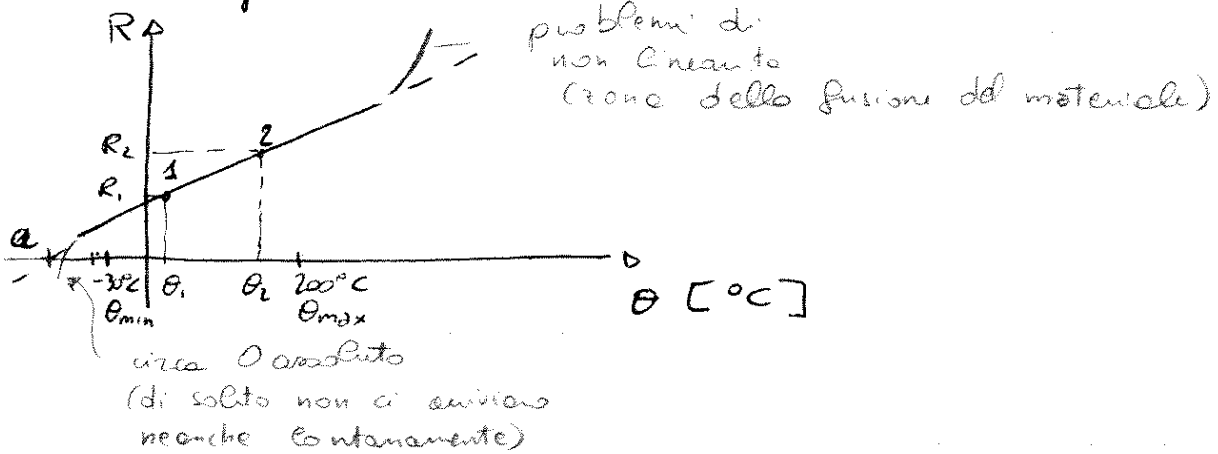 R
problemi di
non linearità
(zona della fusione del materiale)
R₂
2
1
R₁
a
-30°C θ₁ θ₂ 200°C
θmin θmax
θ [°C]
circa 0 assoluto
(di solito non ci arriviamo
neanche lontanamente)